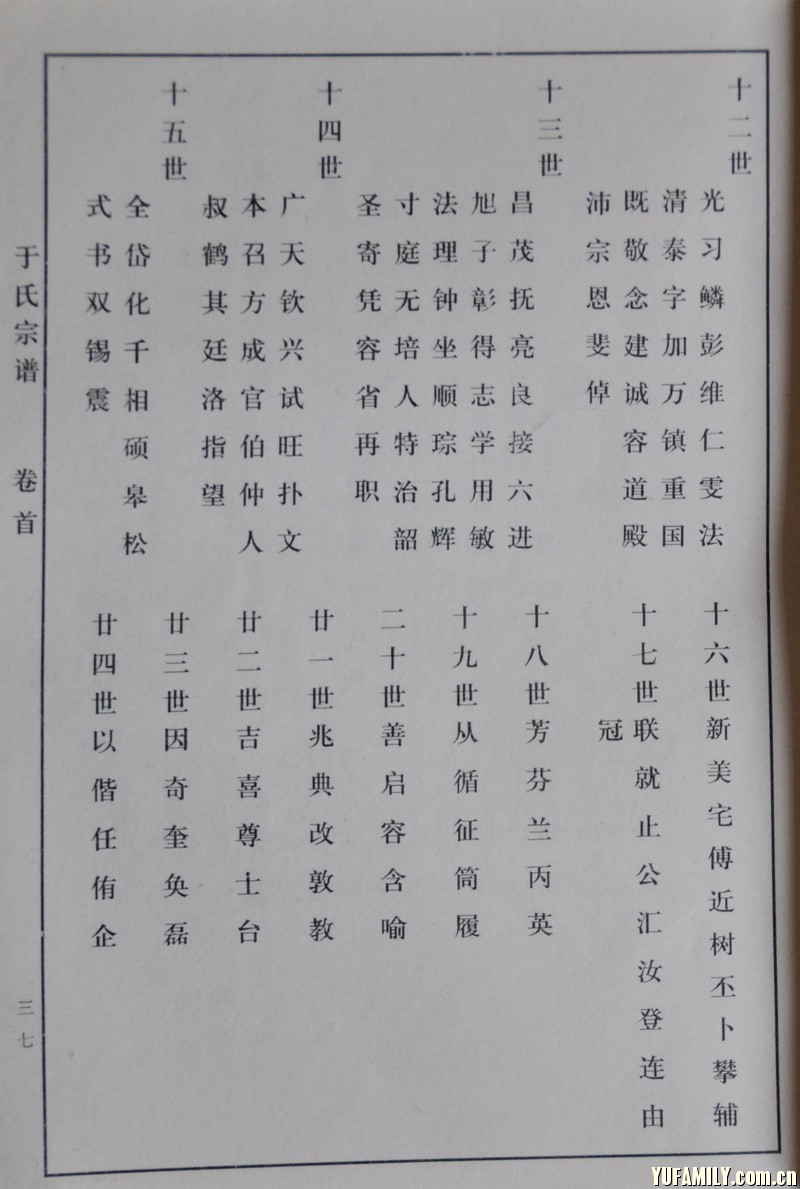 十二世
光习鳞彭维仁雯法
清泰字加万镇重国
既敬念建诚容道殿
沛宗恩斐倬
十三世
昌茂抚亮良接六进
旭子彰得志学用敏
法理钟坐顺琮孔辉
寸庭无培人特治韶
圣寄凭容省再职
十四世
广天钦兴试旺扑文
本召方成官伯仲人
叔鹤其廷洛指望
十五世
全岱化千相硕皋松
式书双锡震
十六世新美宅傅近树丕卜攀辅
十七世联就止公汇汝登连由
冠
十八世芳芬兰丙英
十九世从循征筒履
二十世善启容含喻
廿一世兆典改敦教
廿二世吉喜尊士台
廿三世因奇奎奂磊
廿四世以偕任侑企
于氏宗谱 卷首
三七
YUFAMILY.com.cn